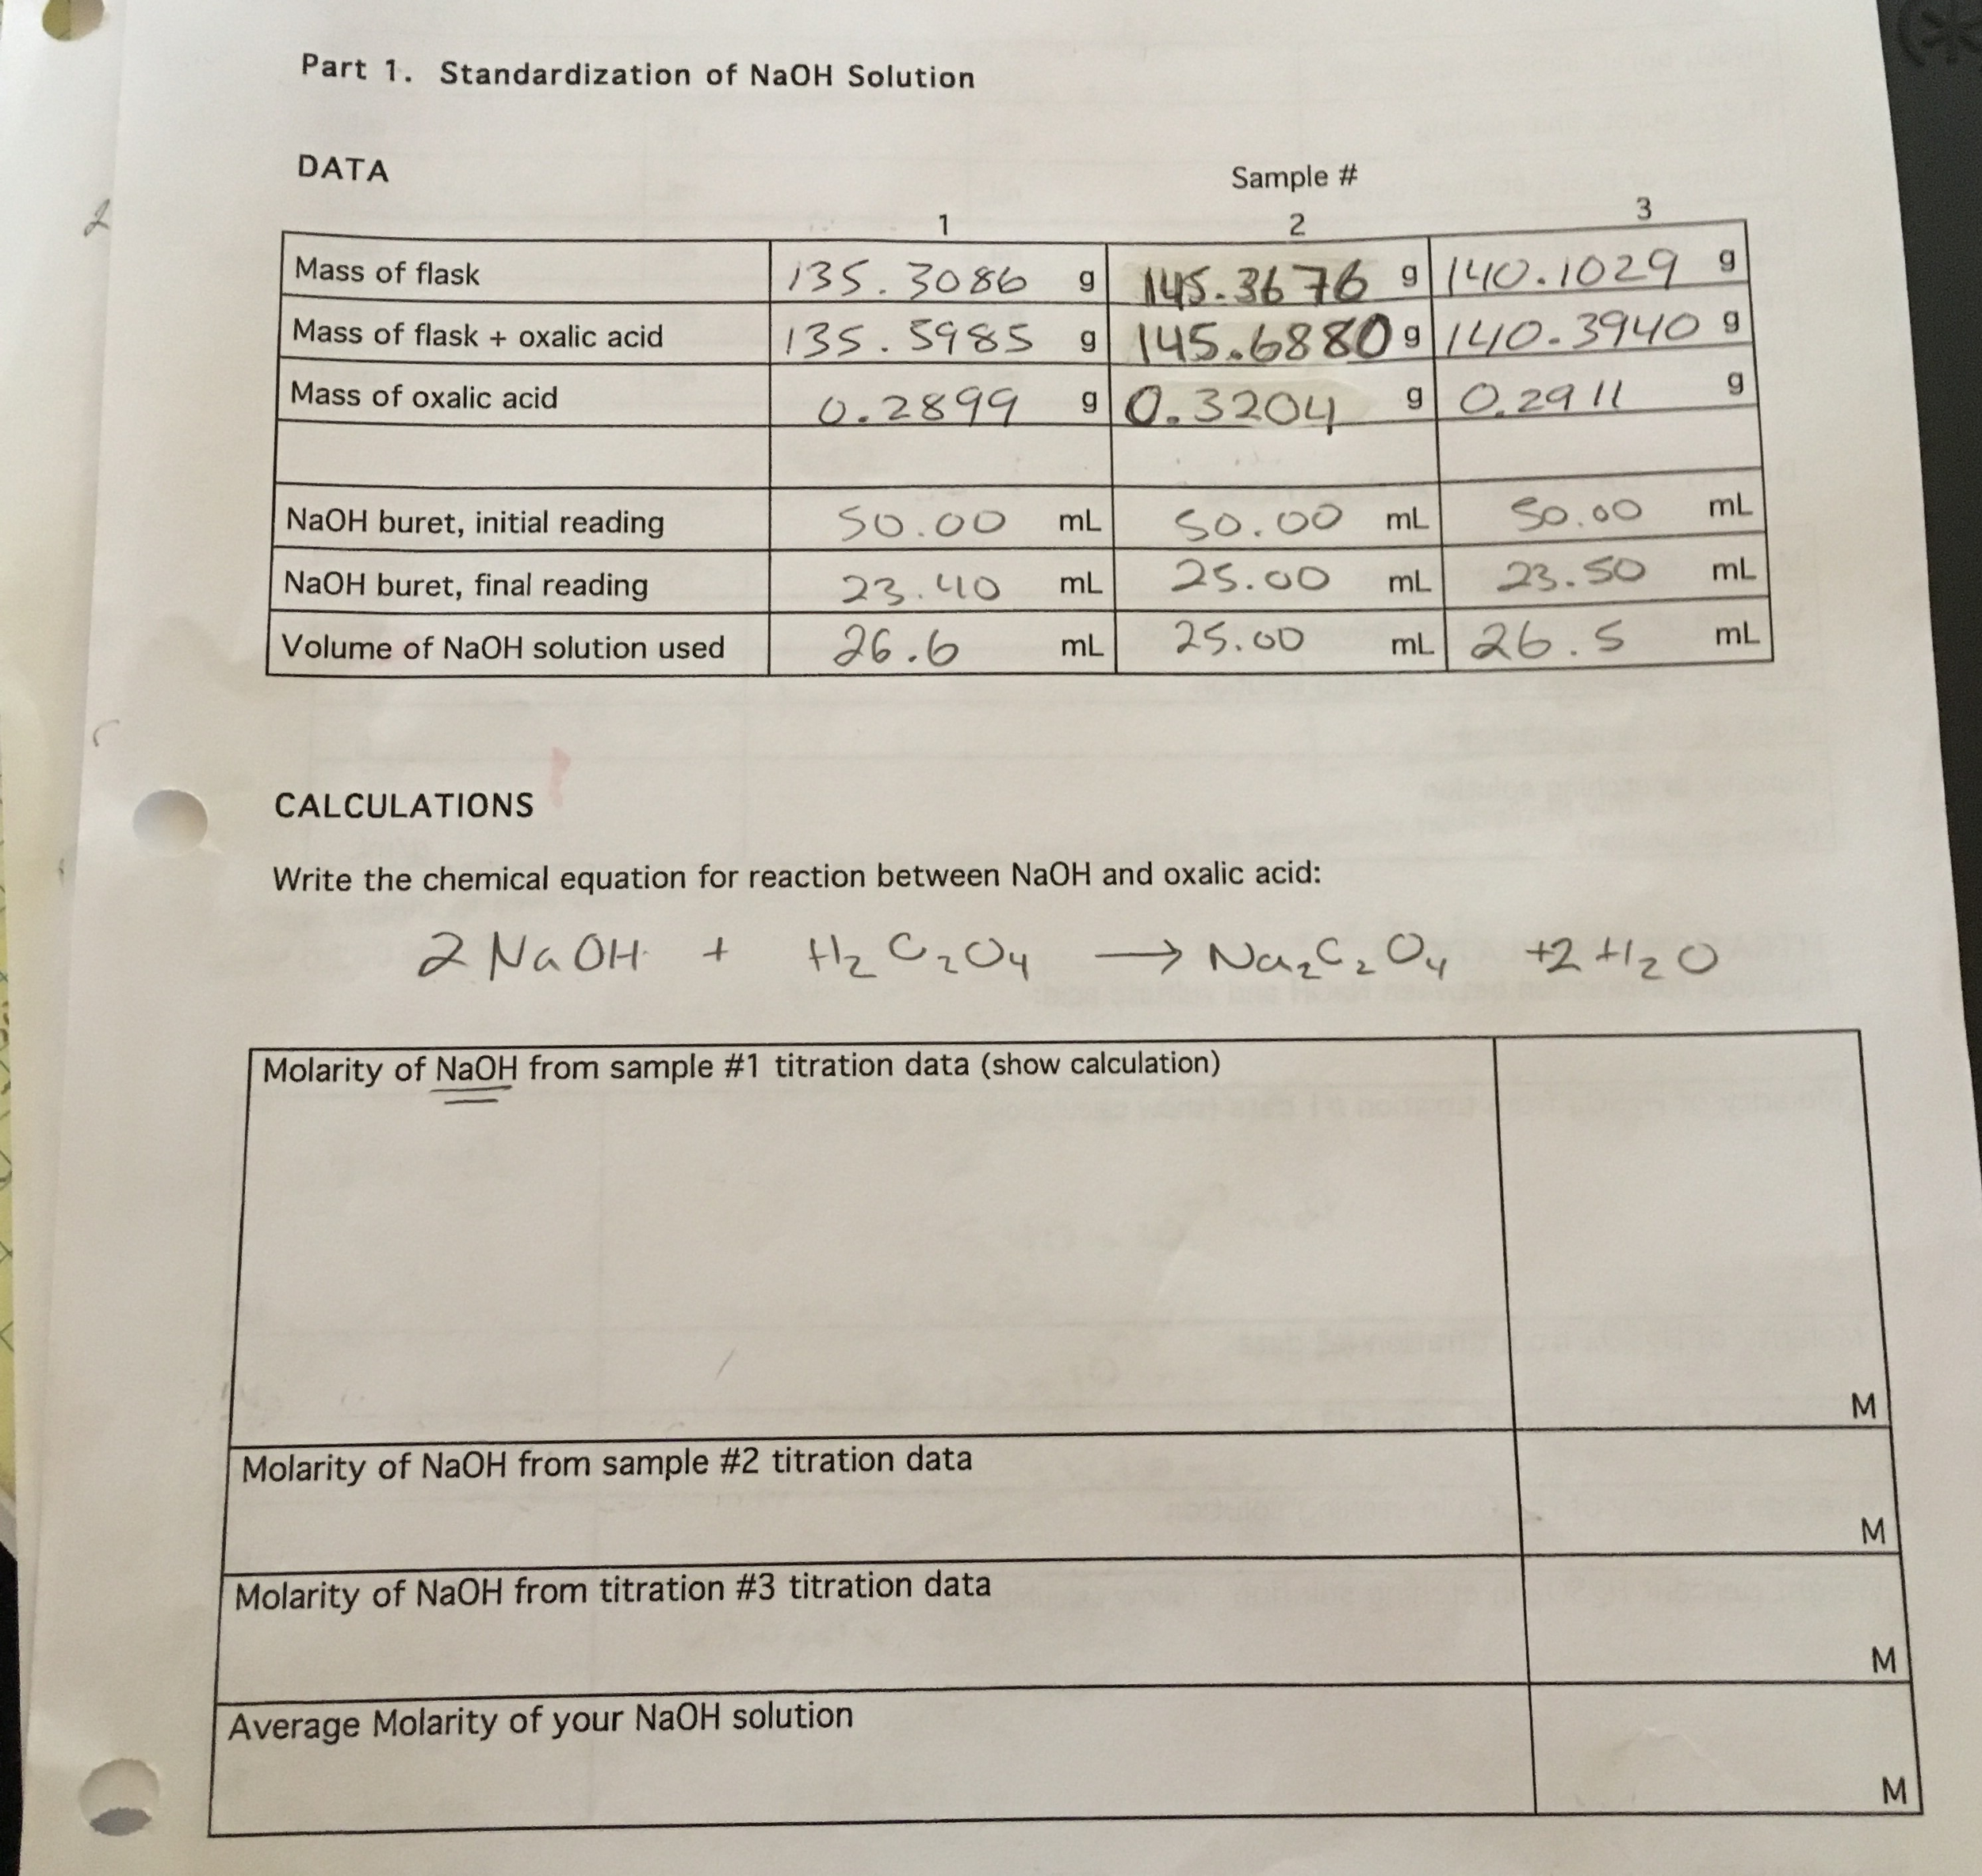 Part 1. Standardization of NaOH Solution
DATA
Sample #
1 2 3
Mass of flask 135.3086 g 145.3676 g 140.1029 g
Mass of flask + oxalic acid 135.5985 g 145.6880 g 140.3940 g
Mass of oxalic acid 0.2899 g 0.3204 g 0.2911 g
NaOH buret, initial reading 50.00 mL 50.00 mL 50.00 mL
NaOH buret, final reading 23.40 mL 25.00 mL 23.50 mL
Volume of NaOH solution used 26.6 mL 25.00 mL 26.5 mL
CALCULATIONS
Write the chemical equation for reaction between NaOH and oxalic acid:
2 NaOH + H₂C₂O₄ → Na₂C₂O₄ +2 H₂O
Molarity of NaOH from sample #1 titration data (show calculation)
M
Molarity of NaOH from sample #2 titration data
M
Molarity of NaOH from titration #3 titration data
M
Average Molarity of your NaOH solution
M